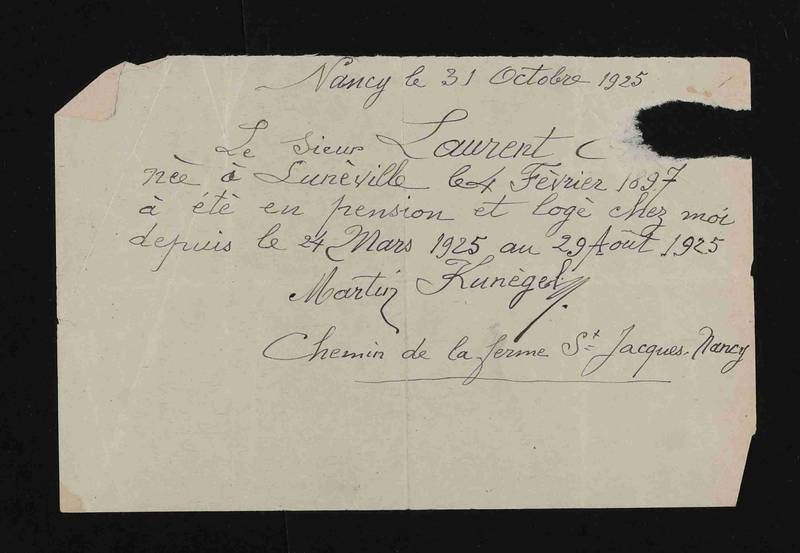 Nancy le 31 Octobre 1925
Le Sieur Laurent C
née à Lunèville le 4 Fèvrier 1897
à étè en pension et logè chez moi
depuis le 24 Mars 1925 au 29 Août 1925
Martin Kunègel
Chemin de la ferme St Jacques. Nancy